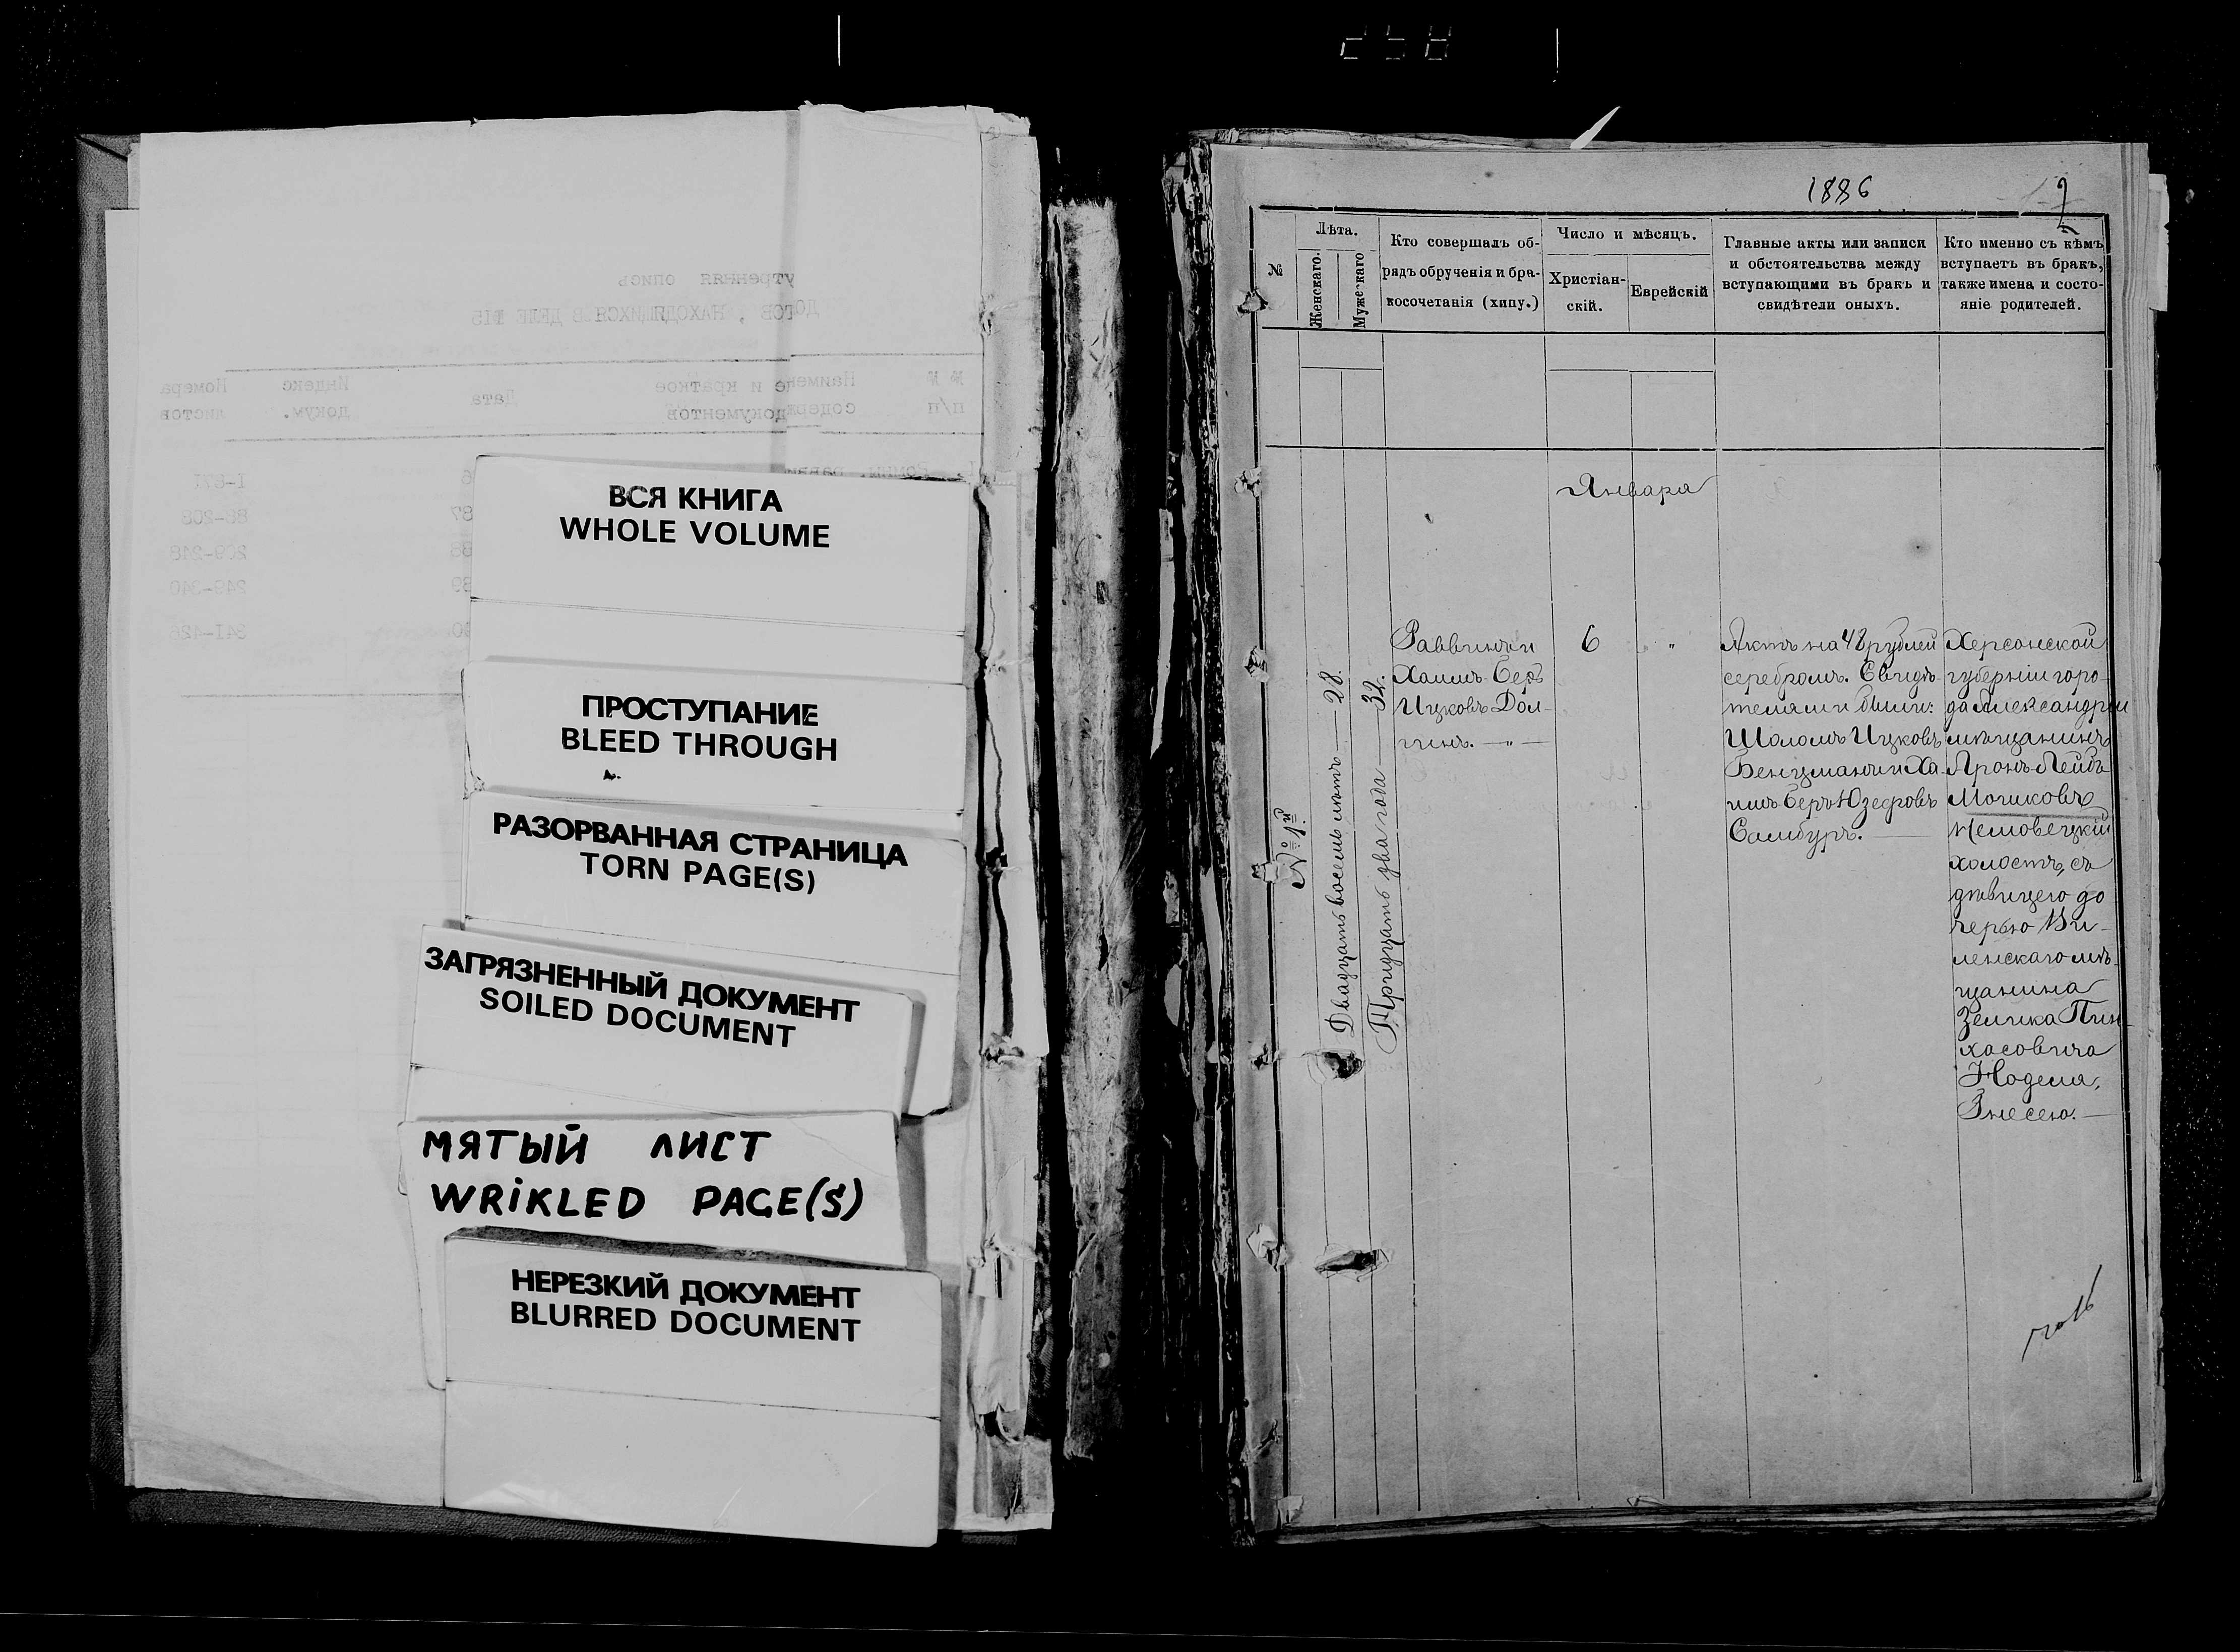 258
утренняя опись
ДОГОВ , НАХОДЯЩИХСЯ В ДЕЛЕ №15
№ №
п/п
Дата
Индекс
докум.
Номера
листов
88-208
209-248
249-340
341-426
ВСЯ КНИГА
WHOLE VOLUME
ПРОСТУПАНИЕ
BLEED THROUGH
РАЗОРВАННАЯ СТРАНИЦА
TORN PAGE(S)
ЗАГРЯЗНЕННЫЙ ДОКУМЕНТ
SOILED DOCUMENT
МЯТЫЙ ЛИСТ
WRiKLED PAGE(S)
НЕРЕЗКИЙ ДОКУМЕНТ
BLURRED DOCUMENT
1886
2
№
Лѣта.
Женскаго.
Мужескаго
Кто совершалъ об-
рядъ обрученія и бра-
косочетанія (хипу.)
Число и мѣсяцъ.
Христіан-
скій.
Еврейскій
Главные акты или записи
и обстоятельства между
вступающими въ бракъ и
свидѣтели оныхъ.
Кто именно съ кѣмъ
вступаетъ въ бракъ,
также имена и состо-
яніе родителей.
Января
№ 1й.
Двадцать восемь лѣтъ — 28.
Тридцать два года — 32.
Раввинъ
Хаимъ-Беръ
Ицковъ Дол-
гинъ. — „ —
6
„
Актъ на 48 рублей
серебромъ. Свидѣ-
телями были:
Шоломъ Ицковъ
Бенцманъ и Ха-
имъ Беръ Юзефовъ
Самбуръ. —
Херсонской
губерніи горо-
да Александріи
мѣщанинъ
Аронъ-Лейбъ
Мошковъ
холостъ, съ
дѣвицею до
черью Ви-
ленскаго мѣ-
щанина
Зелика Пин-
хасовича